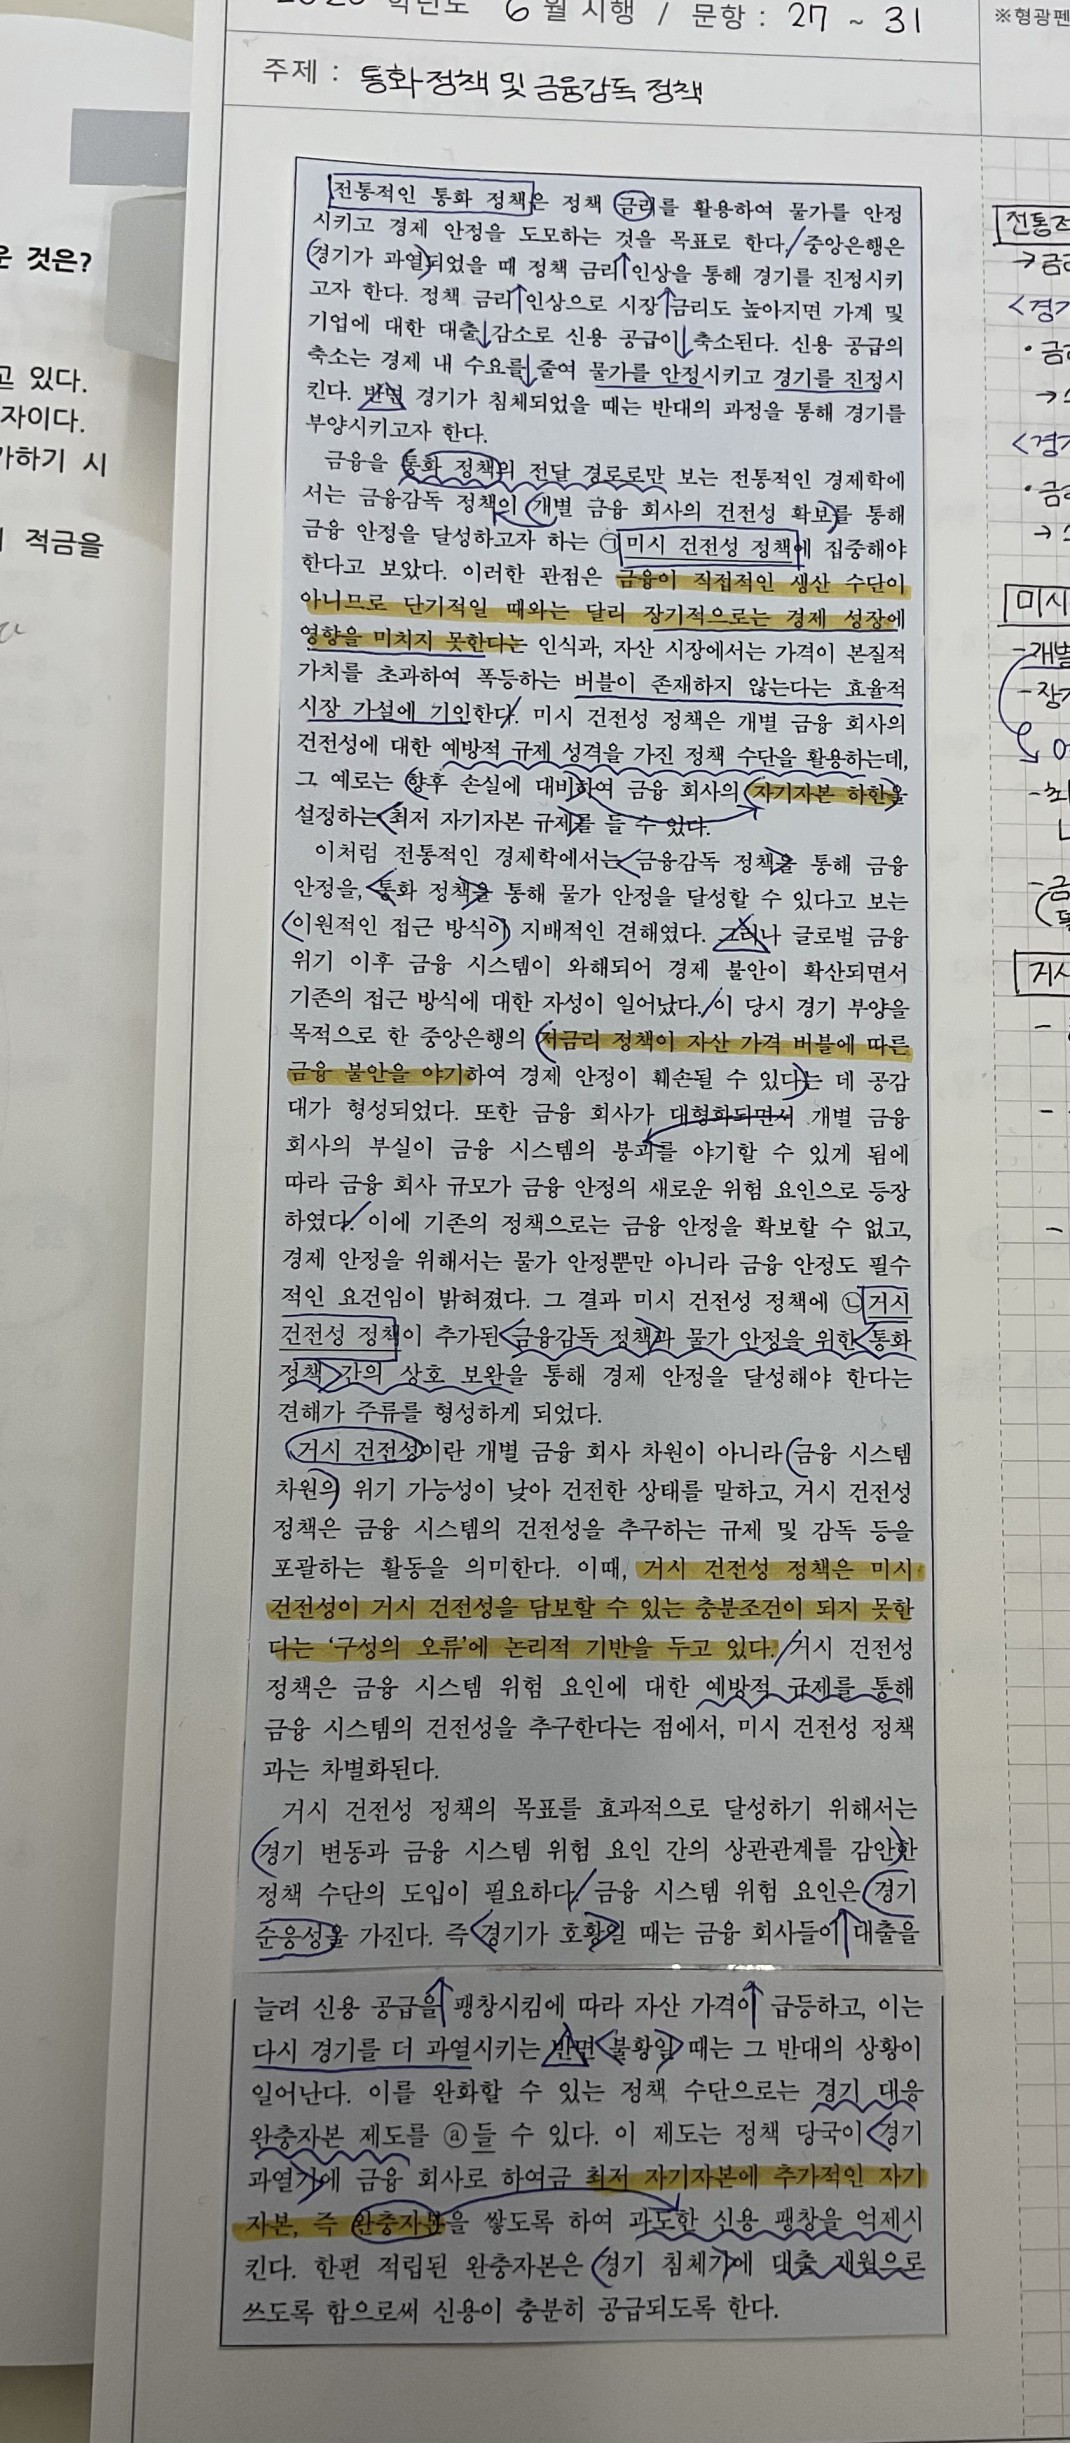 학년도 6월 시행 / 문항 : 27 ~ 31
※형광펜
주제 : 통화정책 및 금융감독 정책
은 것은?
고 있다.
자이다.
가하기 시
적금을
전통적인 통화 정책은 정책 금리를 활용하여 물가를 안정
시키고 경제 안정을 도모하는 것을 목표로 한다. 중앙은행은
경기가 과열되었을 때 정책 금리 인상을 통해 경기를 진정시키
고자 한다. 정책 금리 인상으로 시장 금리도 높아지면 가계 및
기업에 대한 대출 감소로 신용 공급이 축소된다. 신용 공급의
축소는 경제 내 수요를 줄여 물가를 안정시키고 경기를 진정시
킨다. 반면 경기가 침체되었을 때는 반대의 과정을 통해 경기를
부양시키고자 한다.
금융을 통화 정책의 전달 경로로만 보는 전통적인 경제학에
서는 금융감독 정책이 개별 금융 회사의 건전성 확보를 통해
금융 안정을 달성하고자 하는 ㉠미시 건전성 정책에 집중해야
한다고 보았다. 이러한 관점은 금융이 직접적인 생산 수단이
아니므로 단기적일 때와는 달리 장기적으로는 경제 성장에
영향을 미치지 못한다는 인식과, 자산 시장에서는 가격이 본질적
가치를 초과하여 폭등하는 버블이 존재하지 않는다는 효율적
시장 가설에 기인한다. 미시 건전성 정책은 개별 금융 회사의
건전성에 대한 예방적 규제 성격을 가진 정책 수단을 활용하는데,
그 예로는 향후 손실에 대비하여 금융 회사의 자기자본 하한을
설정하는 최저 자기자본 규제를 들 수 있다.
이처럼 전통적인 경제학에서는 금융감독 정책을 통해 금융
안정을, 통화 정책을 통해 물가 안정을 달성할 수 있다고 보는
이원적인 접근 방식이 지배적인 견해였다. 그러나 글로벌 금융
위기 이후 금융 시스템이 와해되어 경제 불안이 확산되면서
기존의 접근 방식에 대한 자성이 일어났다. 이 당시 경기 부양을
목적으로 한 중앙은행의 저금리 정책이 자산 가격 버블에 따른
금융 불안을 야기하여 경제 안정이 훼손될 수 있다는 데 공감
대가 형성되었다. 또한 금융 회사가 대형화되면서 개별 금융
회사의 부실이 금융 시스템의 붕괴를 야기할 수 있게 됨에
따라 금융 회사 규모가 금융 안정의 새로운 위험 요인으로 등장
하였다. 이에 기존의 정책으로는 금융 안정을 확보할 수 없고,
경제 안정을 위해서는 물가 안정뿐만 아니라 금융 안정도 필수
적인 요건임이 밝혀졌다. 그 결과 미시 건전성 정책에 ㉡거시
건전성 정책이 추가된 금융감독 정책과 물가 안정을 위한 통화
정책 간의 상호 보완을 통해 경제 안정을 달성해야 한다는
견해가 주류를 형성하게 되었다.
거시 건전성이란 개별 금융 회사 차원이 아니라 금융 시스템
차원의 위기 가능성이 낮아 건전한 상태를 말하고, 거시 건전성
정책은 금융 시스템의 건전성을 추구하는 규제 및 감독 등을
포괄하는 활동을 의미한다. 이때, 거시 건전성 정책은 미시
건전성이 거시 건전성을 담보할 수 있는 충분조건이 되지 못한
다는 '구성의 오류'에 논리적 기반을 두고 있다. 거시 건전성
정책은 금융 시스템 위험 요인에 대한 예방적 규제를 통해
금융 시스템의 건전성을 추구한다는 점에서, 미시 건전성 정책
과는 차별화된다.
거시 건전성 정책의 목표를 효과적으로 달성하기 위해서는
경기 변동과 금융 시스템 위험 요인 간의 상관관계를 감안한
정책 수단의 도입이 필요하다. 금융 시스템 위험 요인은 경기
순응성을 가진다. 즉 경기가 호황일 때는 금융 회사들이 대출을
늘려 신용 공급을 팽창시킴에 따라 자산 가격이 급등하고, 이는
다시 경기를 더 과열시키는 반면 불황일 때는 그 반대의 상황이
일어난다. 이를 완화할 수 있는 정책 수단으로는 경기 대응
완충자본 제도를 ⓐ들 수 있다. 이 제도는 정책 당국이 경기
과열기에 금융 회사로 하여금 최저 자기자본에 추가적인 자기
자본, 즉 완충자본을 쌓도록 하여 과도한 신용 팽창을 억제시
킨다. 한편 적립된 완충자본은 경기 침체기에 대출 재원으로
쓰도록 함으로써 신용이 충분히 공급되도록 한다.
전통적
→금리
<경기
· 금리
→
<경기
· 금리
→
미시
-개별
-장기
-최
-금
거시